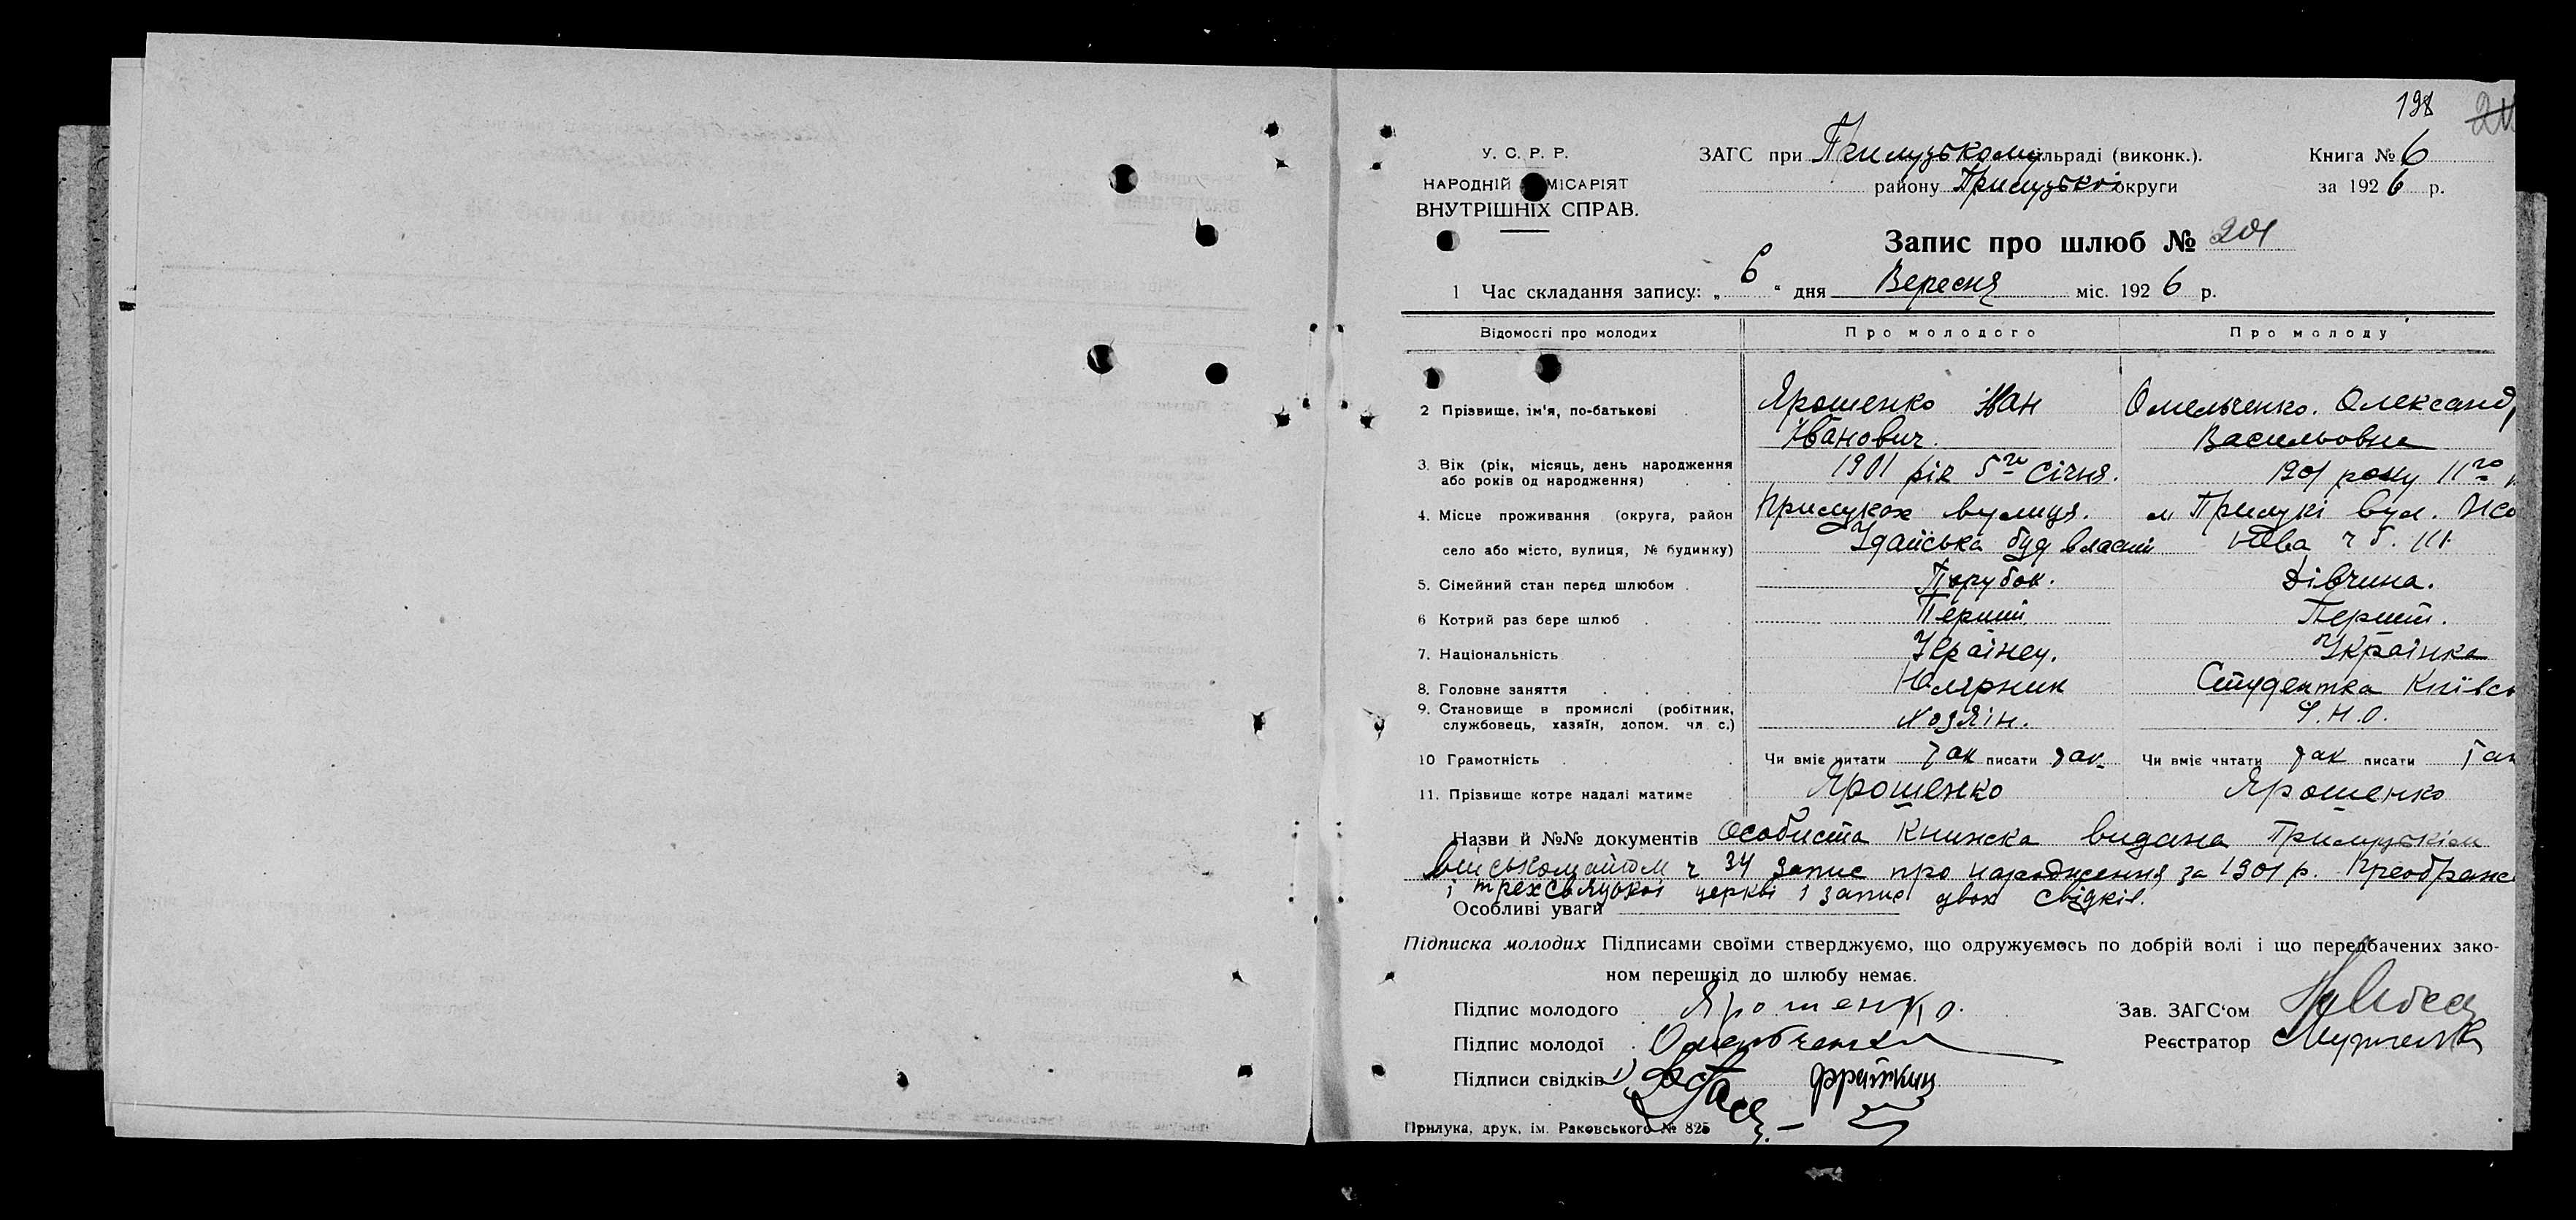 198
У. С. Р. Р.
ЗАГС при Прилузькому сільраді (виконк.).
Книга № 6
НАРОДНІЙ КОМІСАРІЯТ
району Прилузької округи
за 1926 р.
ВНУТРІШНІХ СПРАВ.
Запис про шлюб № 201
1 Час складання запису: „ 6 “ дня Вересня міс. 1926 р.
Відомості про молодих
Про молодого
Про молоду
2 Прізвище, ім'я, по-батькові
Ярошенко Іван
Омельченко. Олександ
Іванович.
Васильовна
3. Вік (рік, місяць, день народження
або років од народження)
1901 рік 5го Січня.
1901 року 11го
4. Місце проживання (округа, район
Прилуках вулиця.
м Прилукі вул.
село або місто, вулиця, № будинку)
буд власий
5. Сімейний стан перед шлюбом
Парубок.
Дівчина.
6 Котрий раз бере шлюб
Перший
Перший.
7. Національність
Українец.
Українка
8. Головне заняття
Студентка Київсь
9. Становище в промислі (робітник,
службовець, хазяїн, допом. чл. с.)
Хозяін.
І.Н.О.
10 Грамотність
Чи вміє читати так писати так
Чи вміє читати так писати так
11. Прізвище котре надалі матиме
Ярошенко
Ярошенко
Назви й №№ документів Особиста Книжка видана Прилуцькім
ч 34 запис про народження за 1901 р. Преображе
і трехсвяцької церкві і запис двох свідків.
Особливі уваги
Підписка молодих Підписами своїми стверджуємо, що одружуємось по добрій волі і що передбачених зако-
ном перешкід до шлюбу немає.
Підпис молодого Ярошенко.
Зав. ЗАГС‘ом
Підпис молодої Омельченко
Реєстратор
Підписи свідків 1)
Прилука, друк. ім. Раковського № 825